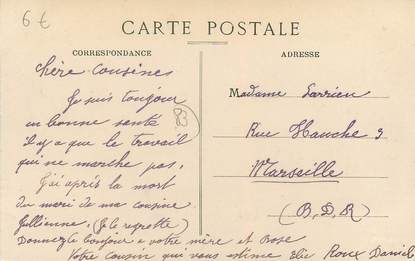 6€
CARTE POSTALE
CORRESPONDANCE
ADRESSE
chère cousines
Je suis toujour
en bonne santé
il y a que le travail
qui ne marche pas.
J'ai après la mort
du mari de ma cousine
Jullienne. (Je le regrette)
Donnez le bonjour a votre mère et Rose
Votre cousin qui vous estime Elie Roux Daniel
83
Madame Larrieu
Rue Hauche 9
Marseille
(B. D. R)